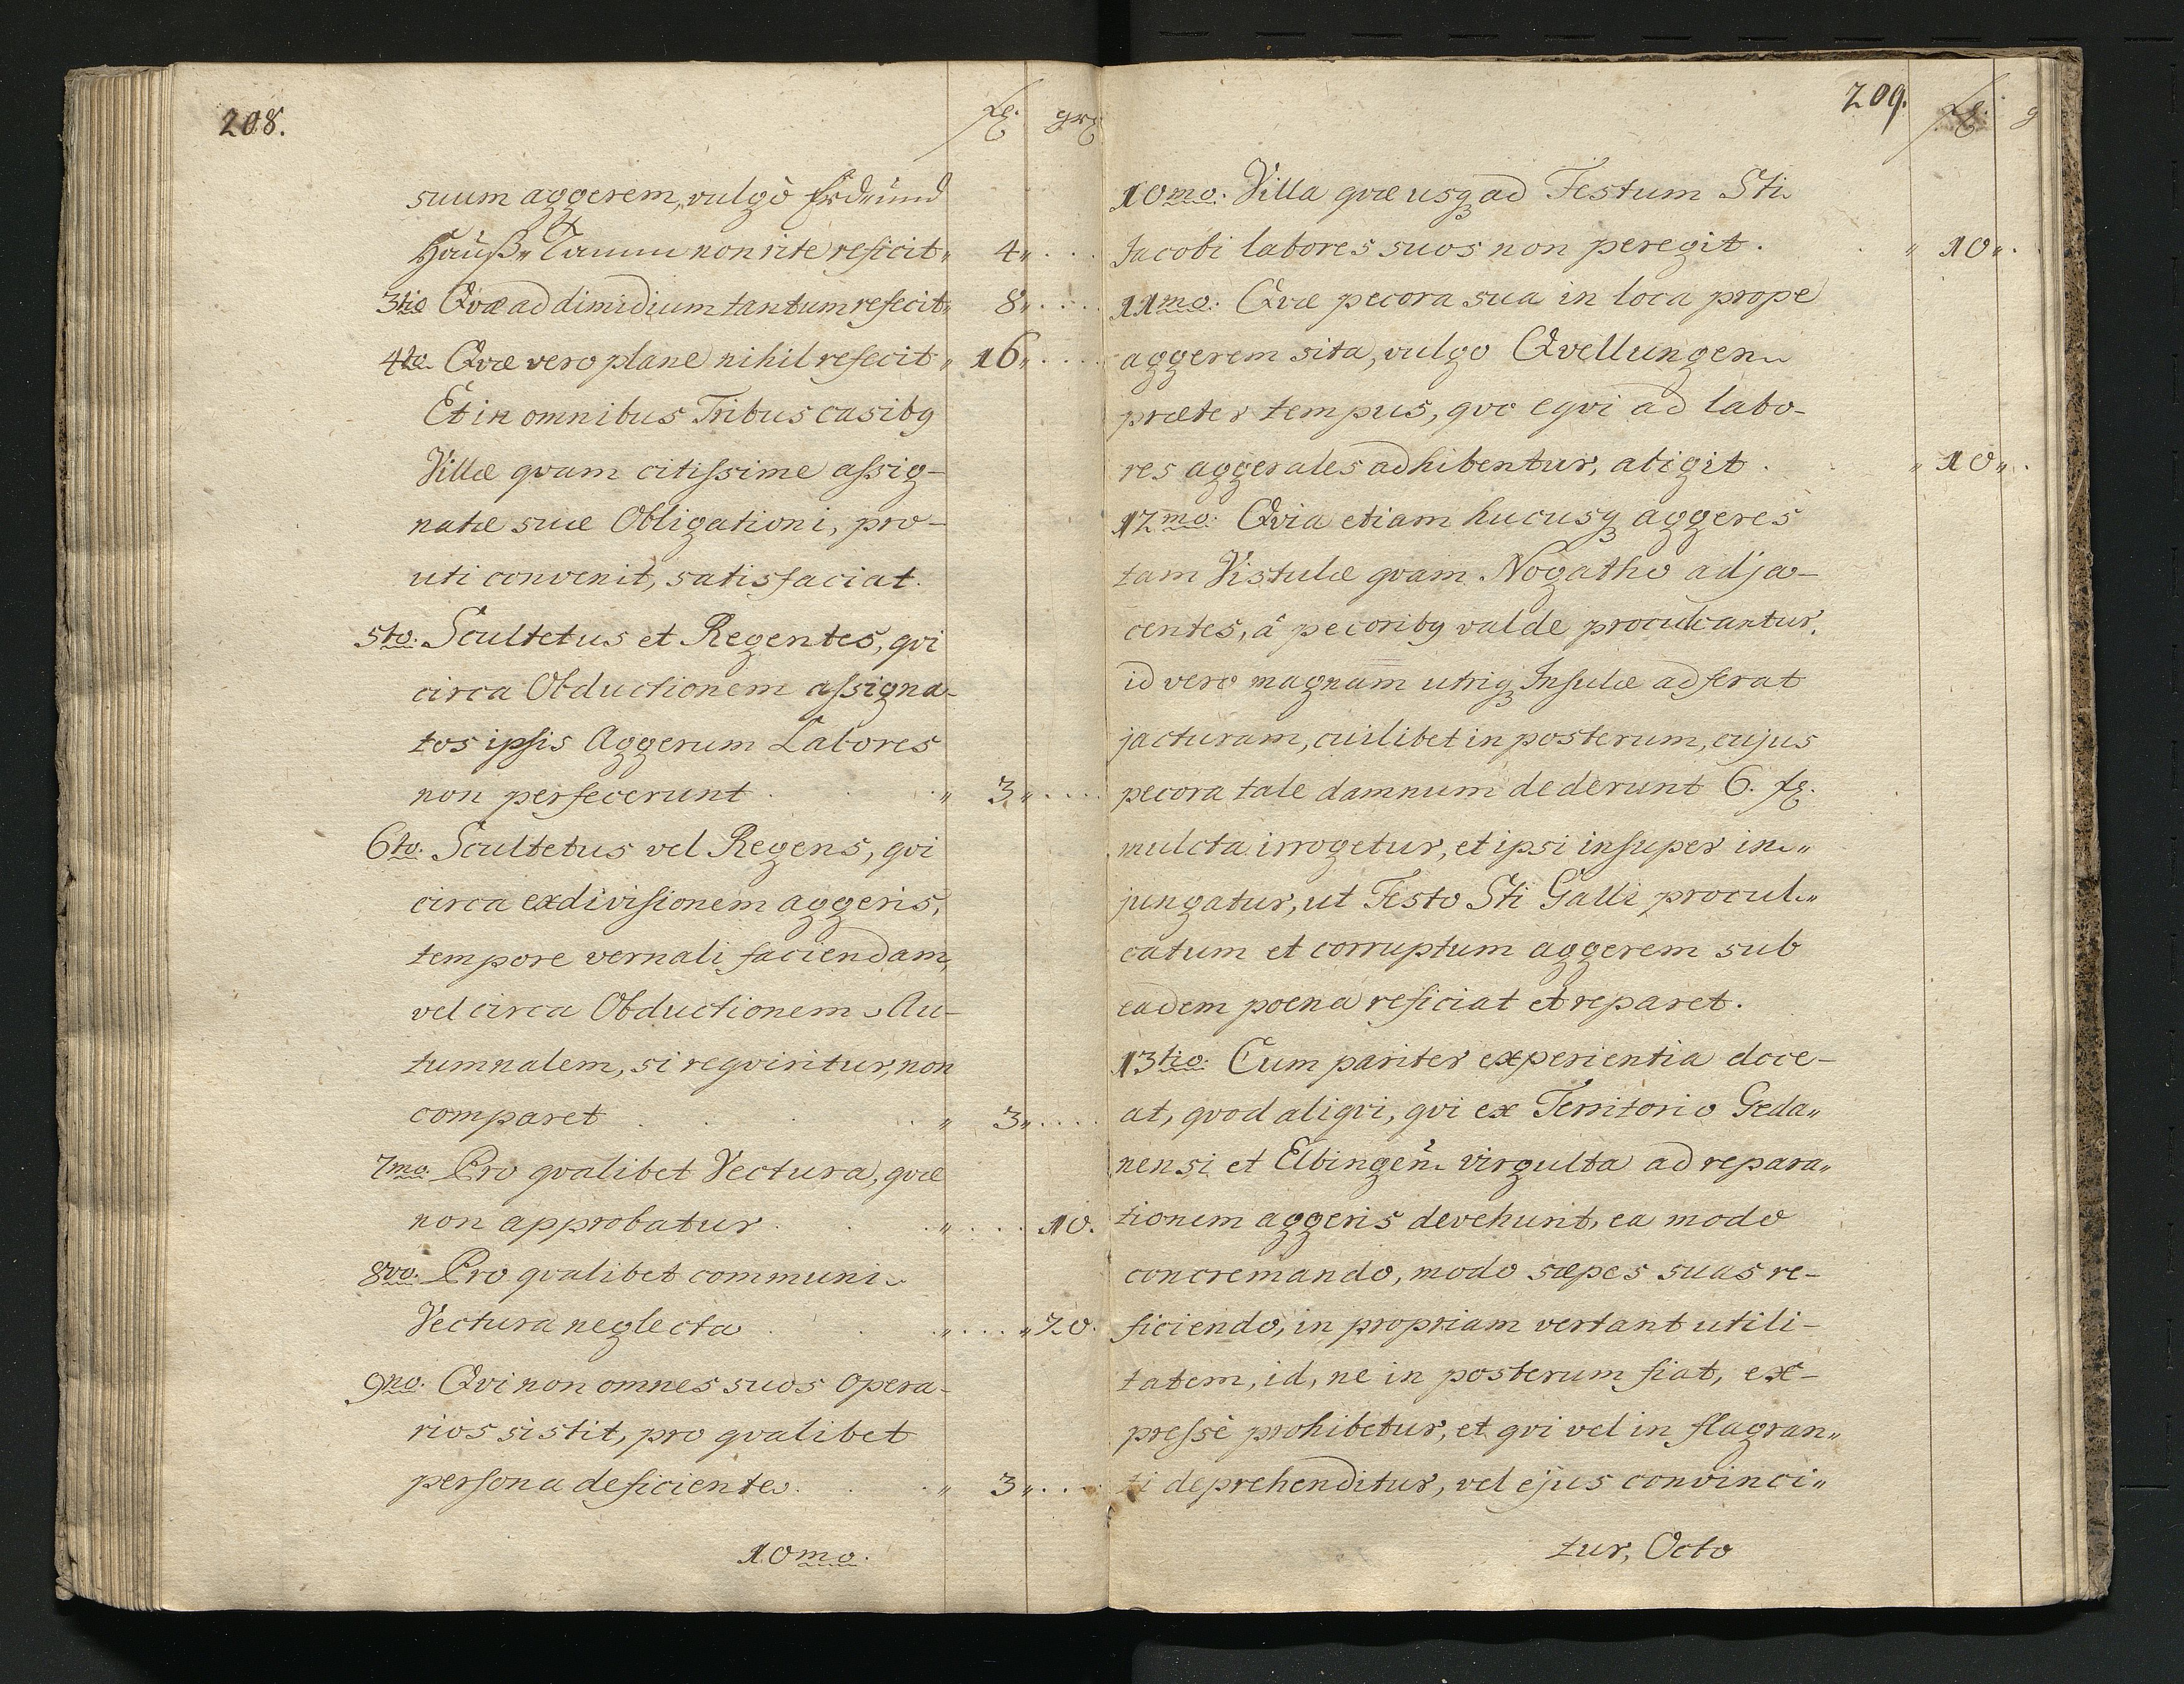 208.
fl. grß
suum aggerem, vulgò Erd- und
Hauß„ Tamm non rite reficit„ 4„ . . .
3tio Qvæ ad dimidium tantum refecit„ 8„ . . . .
4to. Qvæ vero plane nihil refecit „ 16„ . . . .
Et in omnibus Tribus casibq
Villæ qvam citissime assig-
natæ suæ Obligationi, pro-
uti convenit, satisfaciat.
5to. Scultetus et Regentes, qvi
circa Obductionem assigna-
tos ipsis Aggerum Labores
non perfecerunt . . . „ 3„ . . . .
6to. Scultetus vel Regens, qvi
circa exdivisionem aggeris,
tempore vernali faciendam,
vel circa Obductionem Au-
tumnalem, si reqviritur, non
comparet . . . . „ 3„ . . . .
7mo. Pro qvalibet Vectura, qvæ
non approbatur . . . „ . . . 10.
8vo. Pro qvalibet communi
Vectura neglecta . . . „ . . . „ 20.
9no. Qvi non omnes suos opera-
rios sistit, pro qvalibet
persona deficiente. . . „ 3„ . . .
10mo.
209.
fl. g
10mo. Villa qvæ usqꝫ ad Festum Sti
Jacobi labores suos non peregit. . „ 10„ .
11mo. Qvæ pecora sua in loca prope
aggerem sita, vulgo Qvellungen
præter tempus, qvo eqvi ad labo-
res aggerales adhibentur, abigit . . „ 10„ .
12mo. Qvia etiam hucusqꝫ aggeres
tam Vistulæ qvam Nogatho adja-
centes, â pecoribq valde proculcantur,
id vero magnam utriqꝫ Insulæ adferat
jacturam, cuilibet in posterum, cujus
pecora tale damnum dederunt 6. fl.
mulcta irrogetur, et ipsi insuper in„
jungatur, ut Festo Sti Galli procul„
catum et corruptum aggerem sub
eadem poena reficiat et reparet.
13tio. Cum pariter experientia doce-
at, qvod aliqvi, qvi ex Territorio Geda„
nensi et Elbingeñ. virgulta ad repara„
tionem aggeris devehunt, ea modo
concremando, modo sæpes suas re-
ficiendo, in propriam vertant utili-
tatem, id, ne in posterum fiat, ex-
pressè prohibetur, et qvi vel in flagran„
ti deprehenditur, vel ejus convinci„
tur, Octo